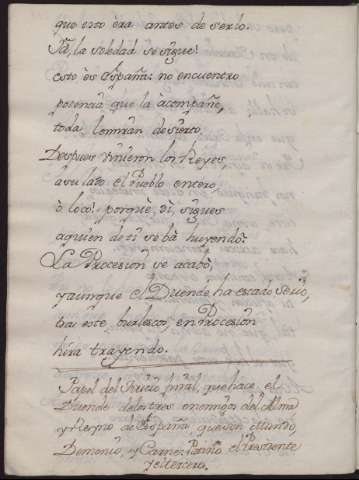 que esto èra antes de serlo.
Tã, la soledad se sigue!
esto ès España: no encuentro
potencia que la àcompañe,
toda la miran desierto,
Despues vinieron los Reyes,
a su lado el Pueblo entero
ò loco! porquè, dì, sigues
aquien de ti se bà huyendo?
La Procesion se acabò,
y aunque el Duende ha estado serio,
tras este, burlesco, en Procesion
hirà trayendo.
Papel del Juicio final, que hace el
Duende de los tres enemigos del Alma
y Reyno de España, que son Mundo,
Demonio, y Carne: Patiño, el Presidente
y el tercero.